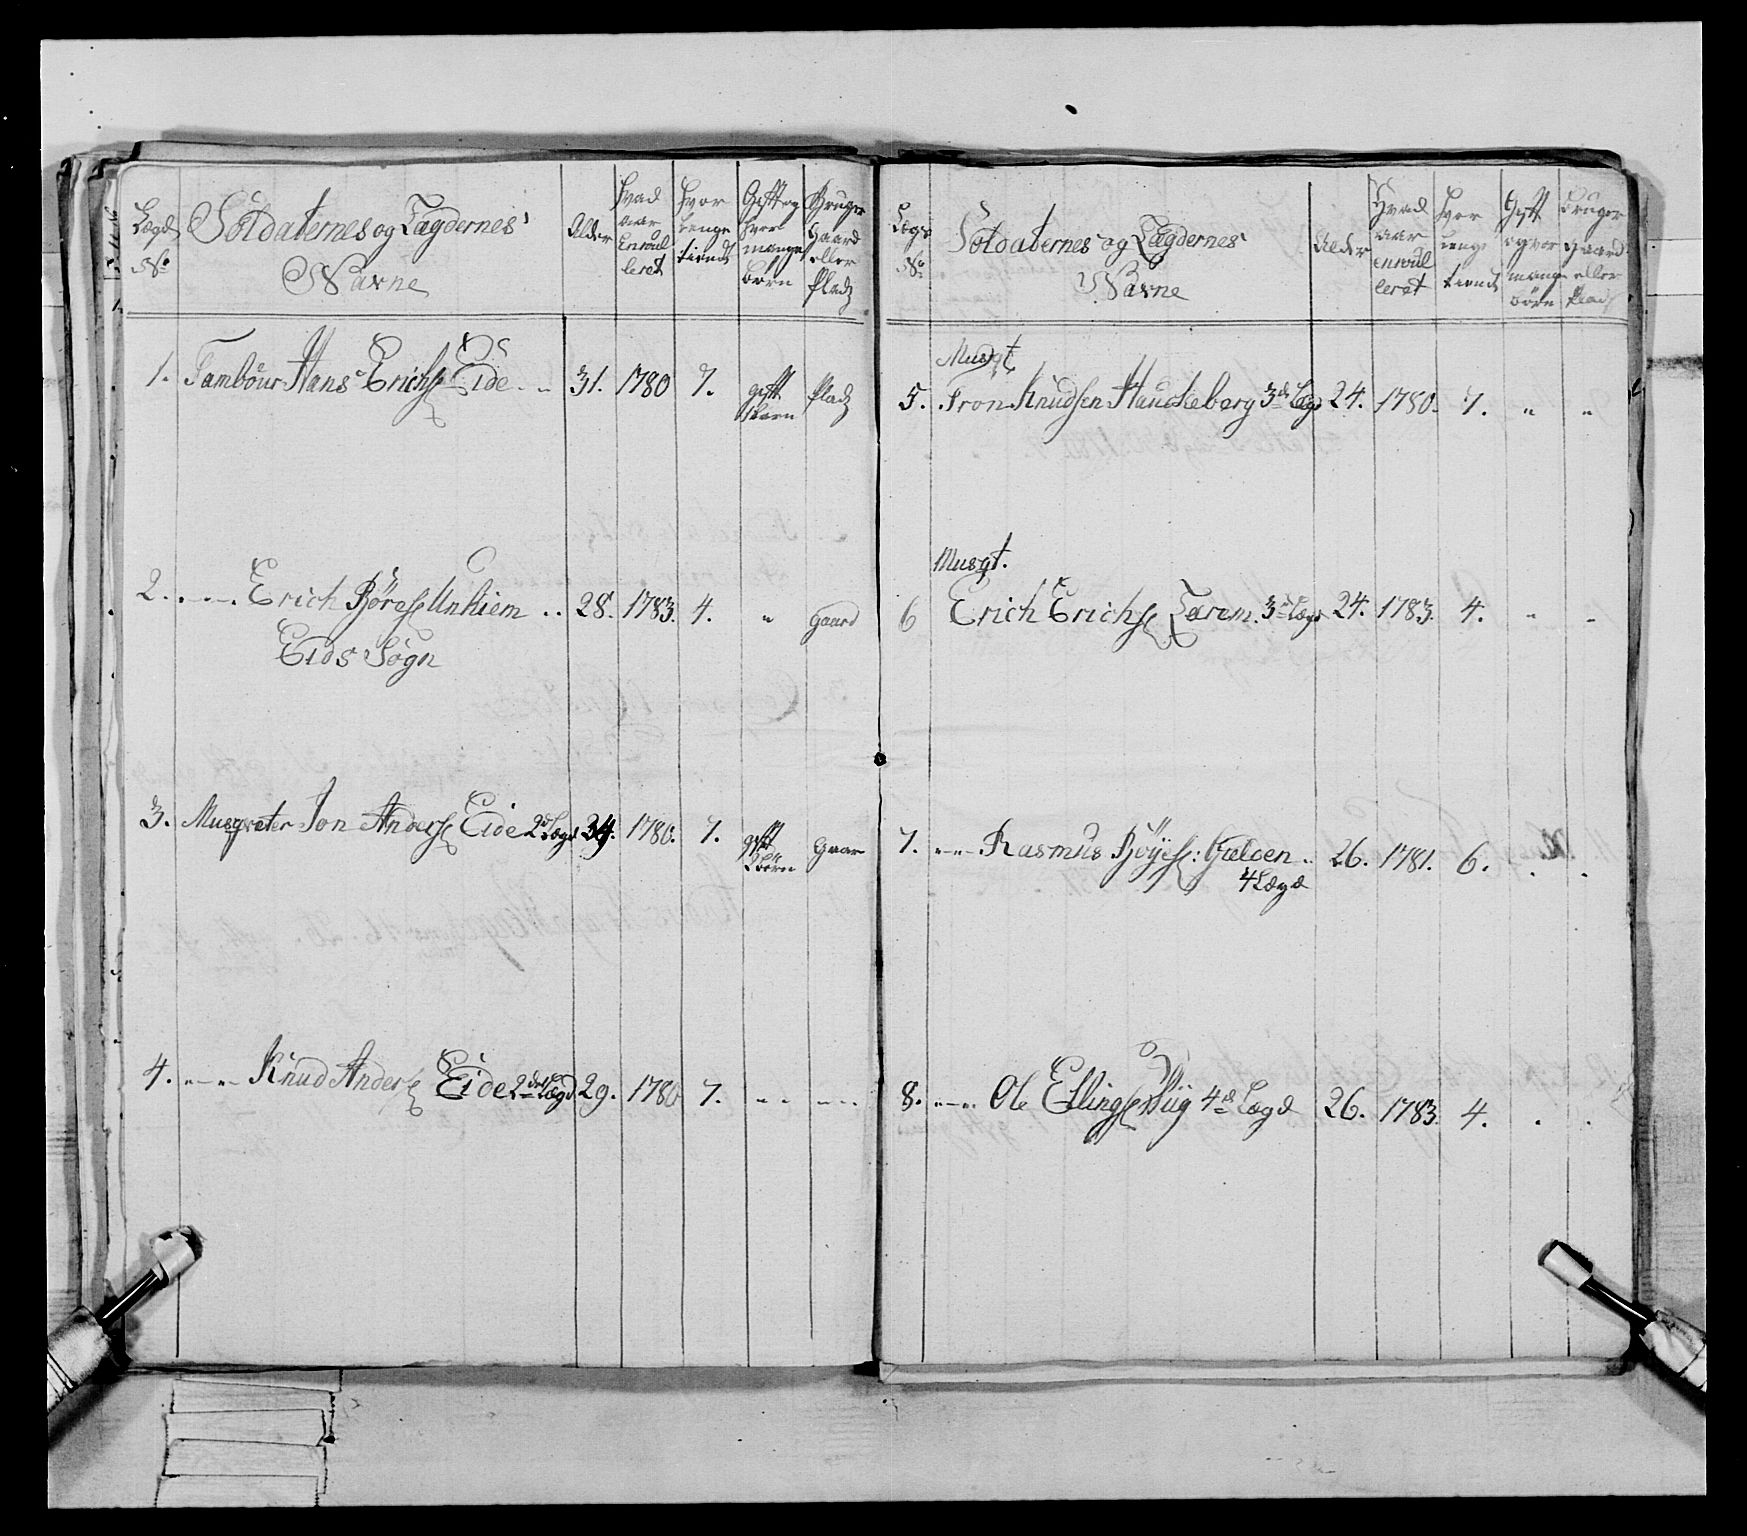 Lægd
No
Soldaternes og Lægdernes
Navne
Alder
Hvad
aar
Enroul
leret
Hvor
lenge
tiendt
Gift og
hvor
mange
børn
Bruger
Gaard
eller
Pladz
1. Tambour Hans Erichs Eide 31. 1780 7. gift Pladz
2. Erich Børes Unhiem 28. 1783. 4. " gaard
Eids Sogn
3. Musqveter Jon Anders Eide 2d Lægd 34. 1780. 7. gift Gaar
2 børn
4. Knud Anders Eide 2den Lægd 29. 1780 7. " "
Lægd
No
Soldaternes og Lægdernes
Navne
Alder
Hvad
aar
enroul
leret
Hvor
lenge
tiendt
Gift
og vor
mange
børn
Bruger
gaard
eller
Plads
Musqt
5. Tron Knudsen Hauckeberg 3de Lægd 24. 1780. 7. " "
Musqt.
6 Erich Erichs Torem. 3de Lægd 24. 1783. 4. " "
7. Rasmus Bøyes: 26. 1781. 6. . .
4 Lægd
8. Ole Ellings Viig 4de Lægd 26. 1783. 4. . .